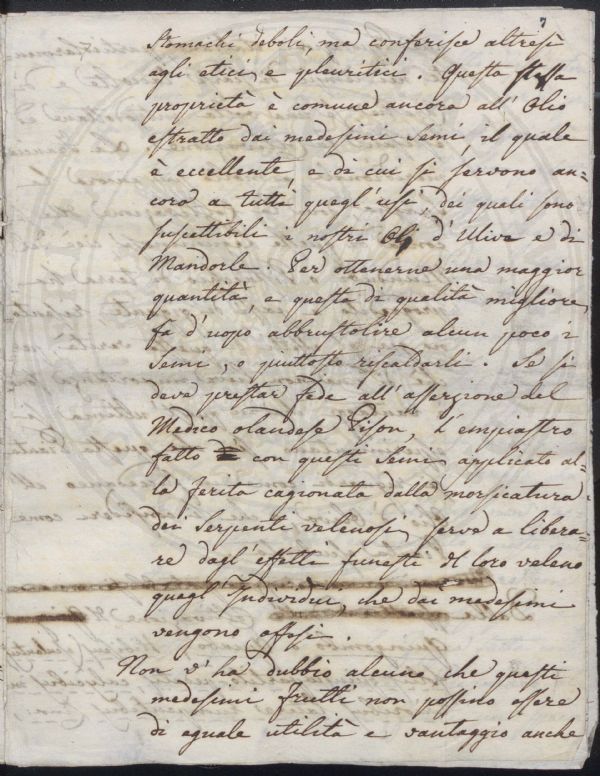 7
Stomachi deboli, ma conferisce altresì
agli etici, e pleuritici. Questa stessa
proprietà è comune ancora all' Olio
estratto dai medesimi Semi, il quale
è eccellente, e di cui si servono an=
cora a tutti quegl' usi, dei quali sono
suscettibili i nostri Olj d' Uliva e di
Mandorle. Per ottenerne una maggior
quantità, e questa di qualità migliore,
fa d' uopo abbrustolire alcun poco i
Semi, o piuttosto riscaldarli. Se si
deve prestar fede all' asserzione del
Medico olandese Pison, l' empiastro
fatto con questi Semi applicato al=
la ferita cagionata dalla morsicatura
dei Serpenti velenosi, serve a libera=
re dagl' effetti funesti del loro veleno
quegl' Individui, che dai medesimi
vengono offesi.
Non v' ha dubbio alcuno che questi
medesimi frutti non possino essere
di eguale utilità e vantaggio anche